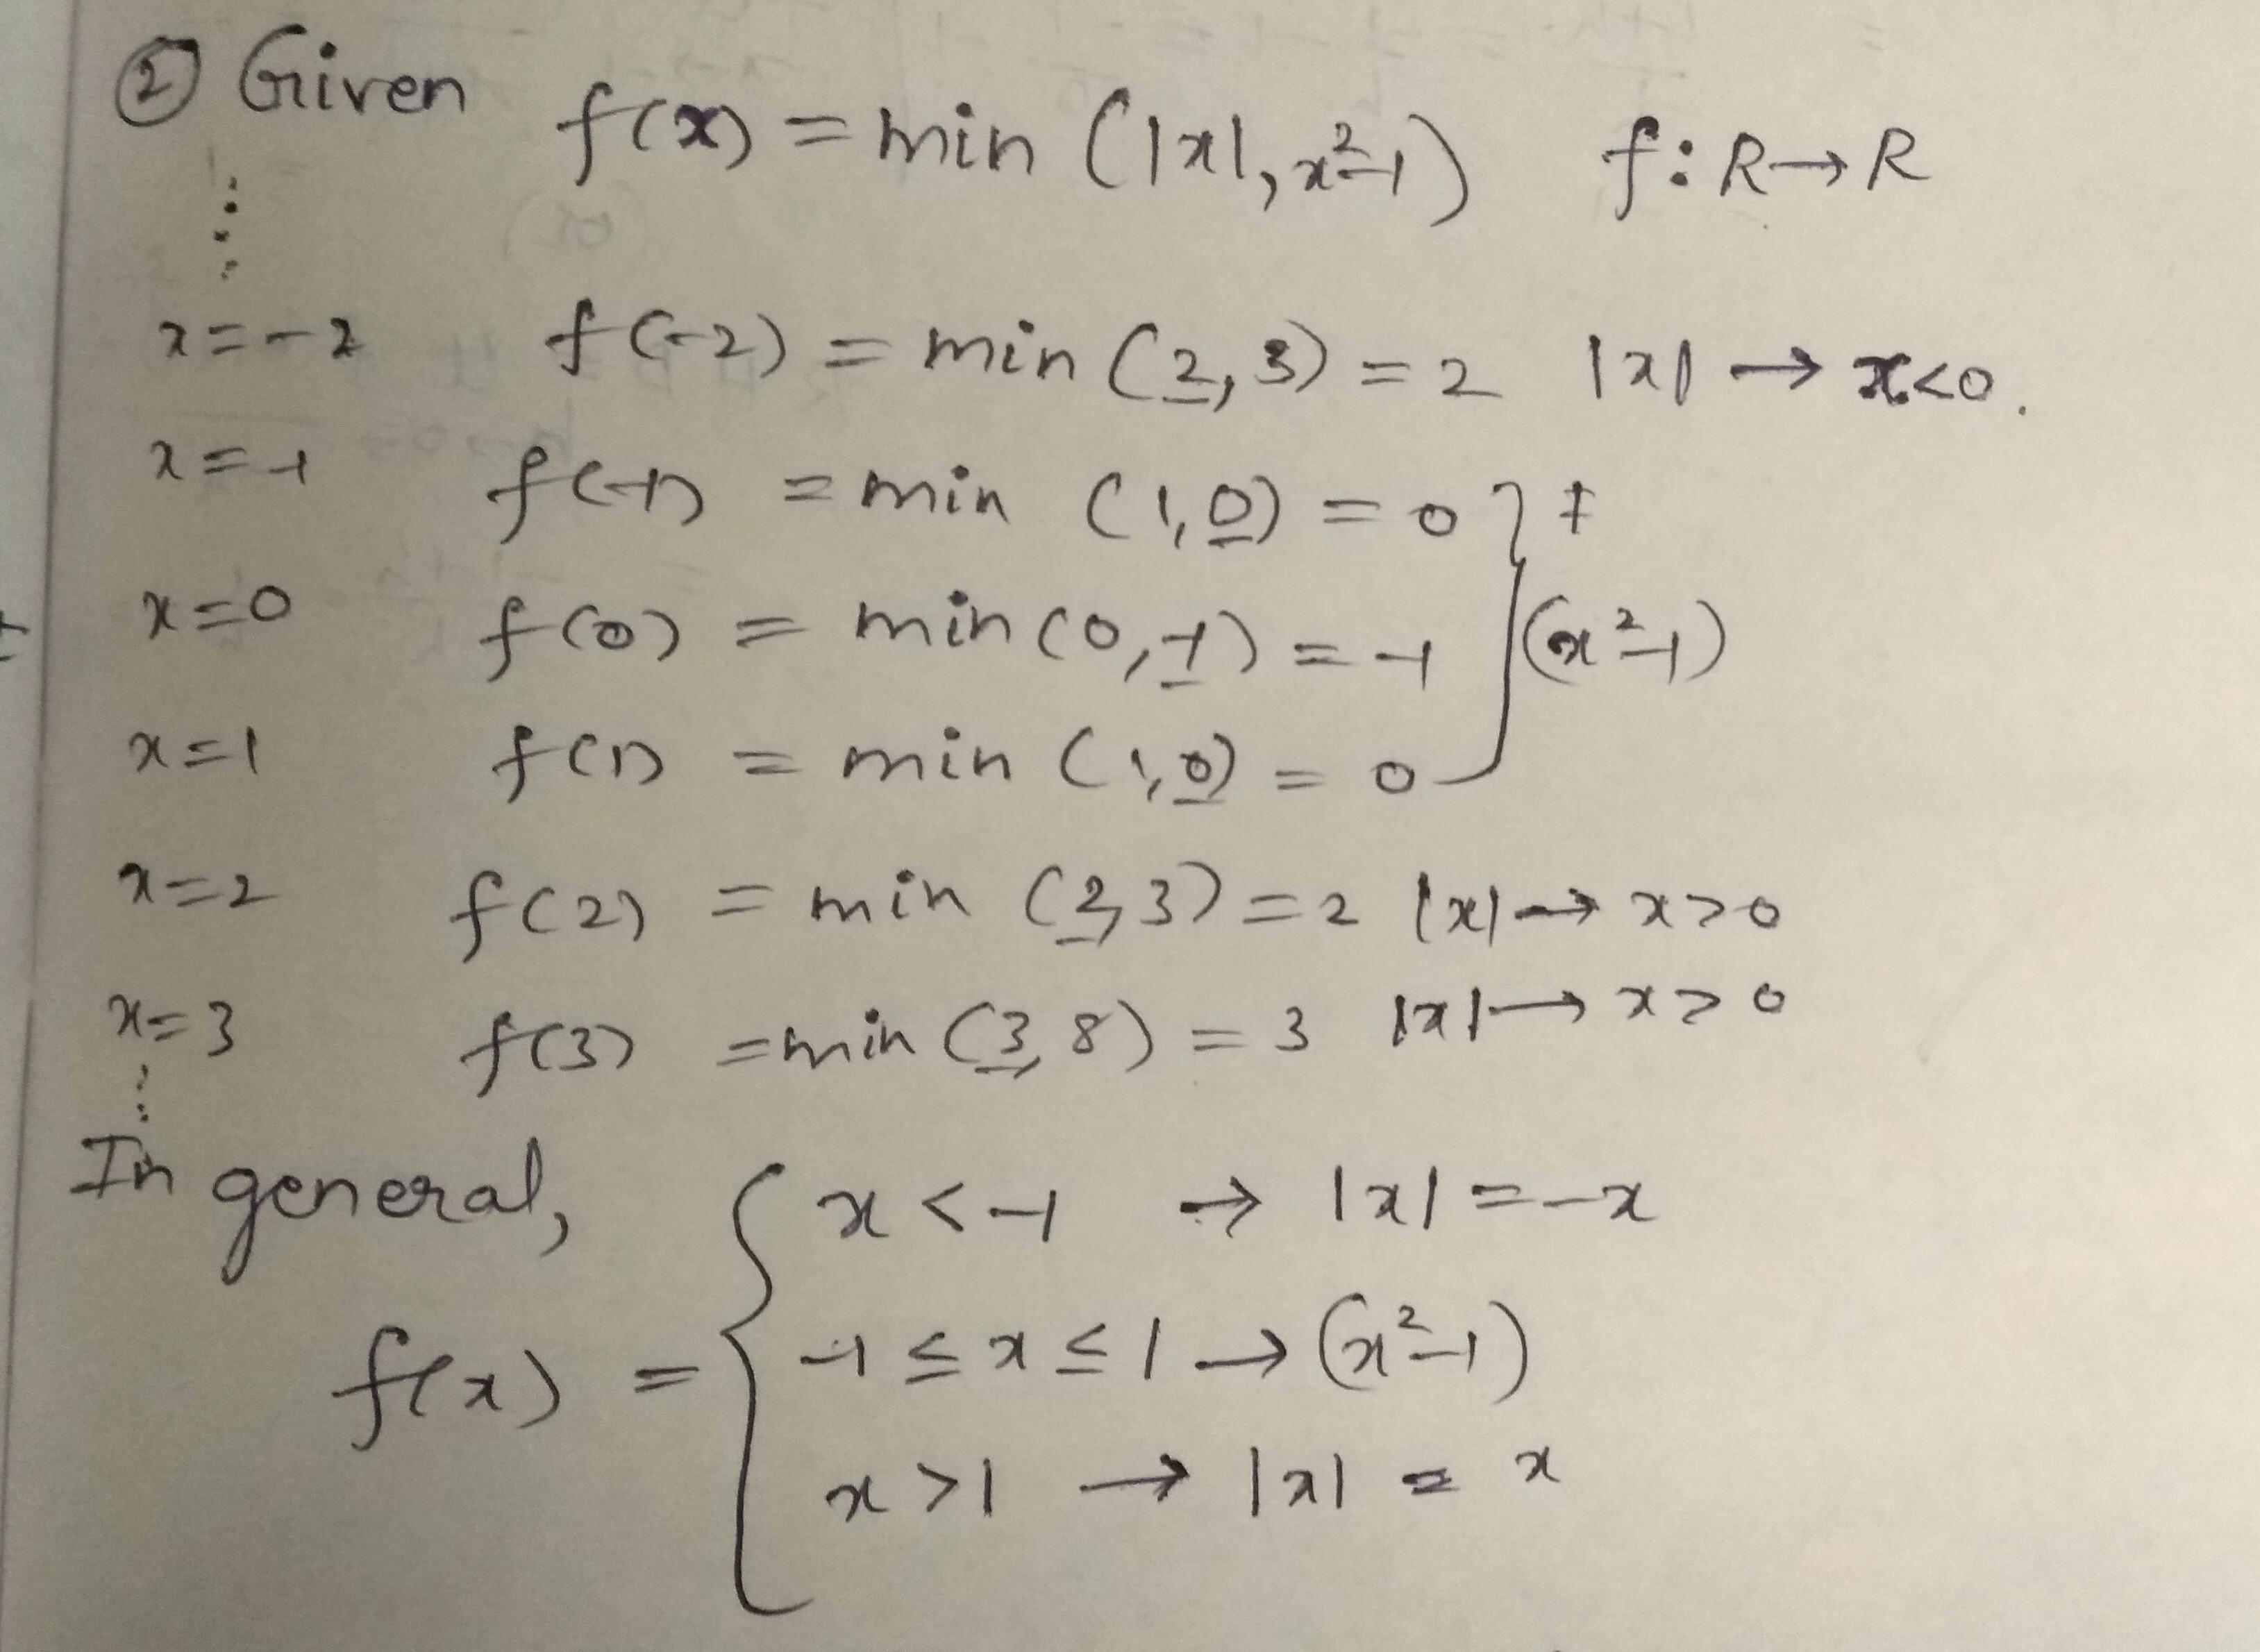 ② Given f(x) = min (|x|, x²-1) f: R→R
⋮
x=-2 f(-2) = min (2, 3) = 2 |x| → x<0.
x=-1 f(-1) = min (1, 0) = 0
x=0 f(0) = min (0, -1) = -1 (x²-1)
x=1 f(1) = min (1, 0) = 0
x=2 f(2) = min (2, 3) = 2 |x| → x>0
x=3 f(3) = min (3, 8) = 3 |x| → x>0
⋮
In general,
x < -1 → |x| = -x
f(x) = { -1 ≤ x ≤ 1 → (x²-1)
x > 1 → |x| = x